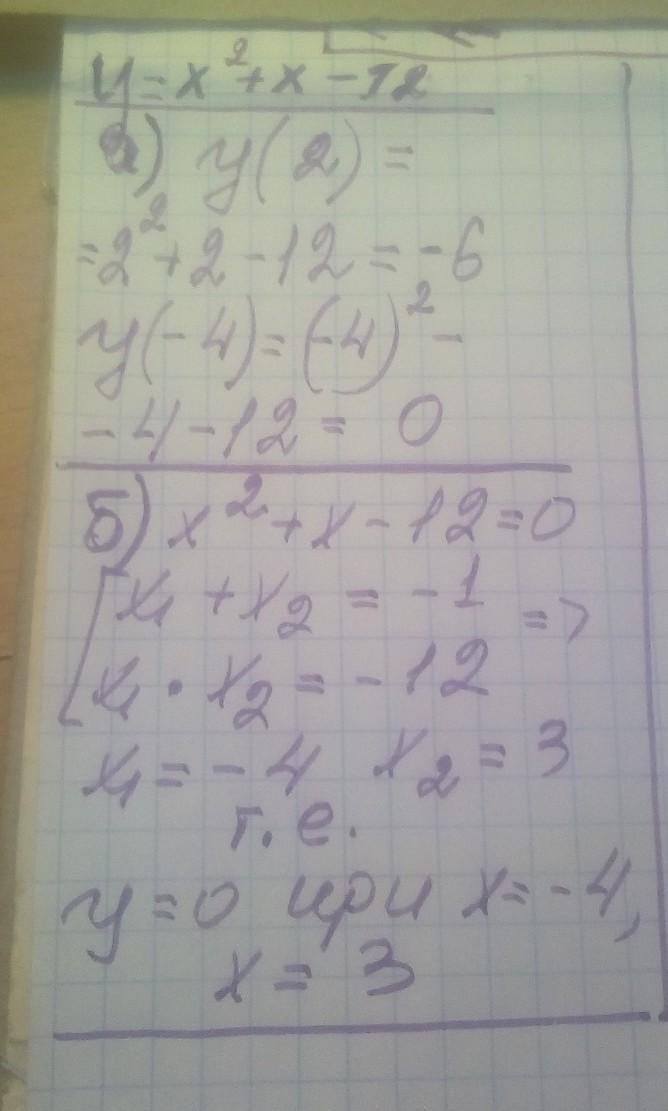 y = x² + x - 12
а) y(2) =
= 2² + 2 - 12 = -6
y(-4) = (-4)² -
- 4 - 12 = 0
б) x² + x - 12 = 0
[x₁ + x₂ = -1 =>
x₁ · x₂ = -12
x₁ = -4 x₂ = 3
т.е.
y = 0 при x = -4,
x = 3